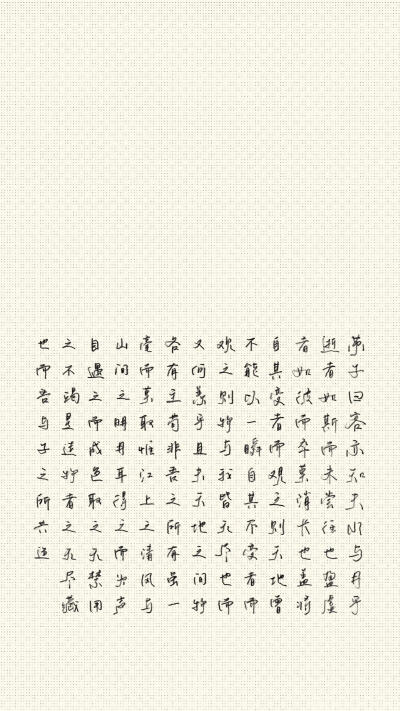 苏子曰客亦知夫水与月乎
逝者如斯而未尝往也盈虚
者如彼而卒莫消长也盖将
自其变者而观之则天地曾
不能以一瞬自其不变者而
观之则物与我皆无尽也而
又何羡乎且夫天地之间物
各有主苟非吾之所有虽一
毫而莫取惟江上之清风与
山间之明月耳得之而为声
目遇之而成色取之无禁用
之不竭是造物者之无尽藏
也而吾与子之所共适